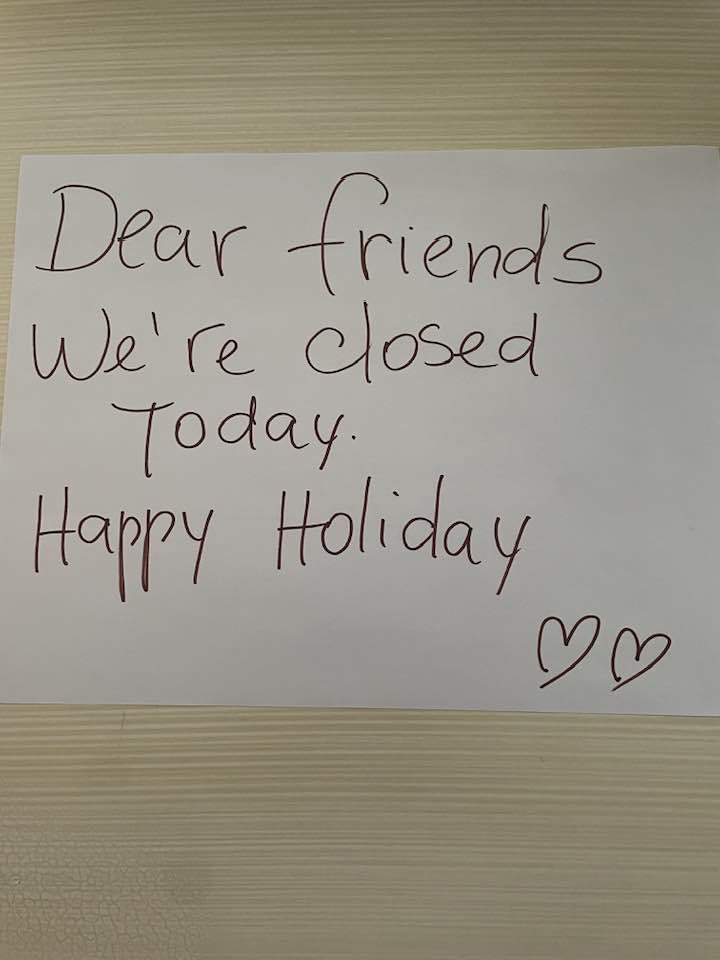 Dear friends
We're closed
Today.
Happy Holiday
♡♡